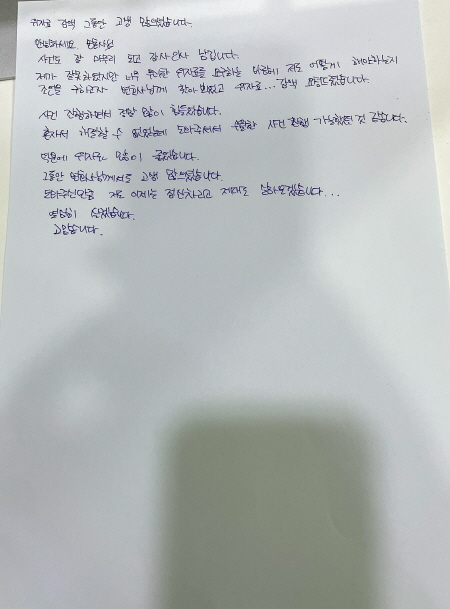 위자료 감액 그동안 고생 많으셨습니다.
안녕하세요. 변호사님
사건도 잘 마무리 되고 감사인사 남깁니다.
제가 잘못하였지만 너무 과한 위자료를 요구하는 바람에 저도 어떻게 해야하는지
조언을 구하고자 변호사님께 찾아뵈었고 위자료... 감액 요청드렸습니다.
사건 진행하면서 정말 많이 힘들었습니다.
혼자서 해결할 수 없었는데 도와주셔서 수월한 사건 진행 가능했던 것 같습니다.
덕분에 위자료도 많이 줄었습니다.
그동안 변호사님께서도 고생 많으셨습니다.
도와주신만큼 저도 이제는 정신차리고 제대로 살아보겠습니다...
열심히 살겠습니다.
고맙습니다.